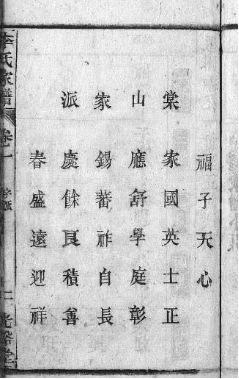 福子天心
棠 家國英士正
山 應舒學庭彰
家 錫蕃祚自長
派 慶餘良積善
春盛遠迎祥
李氏家譜 卷一